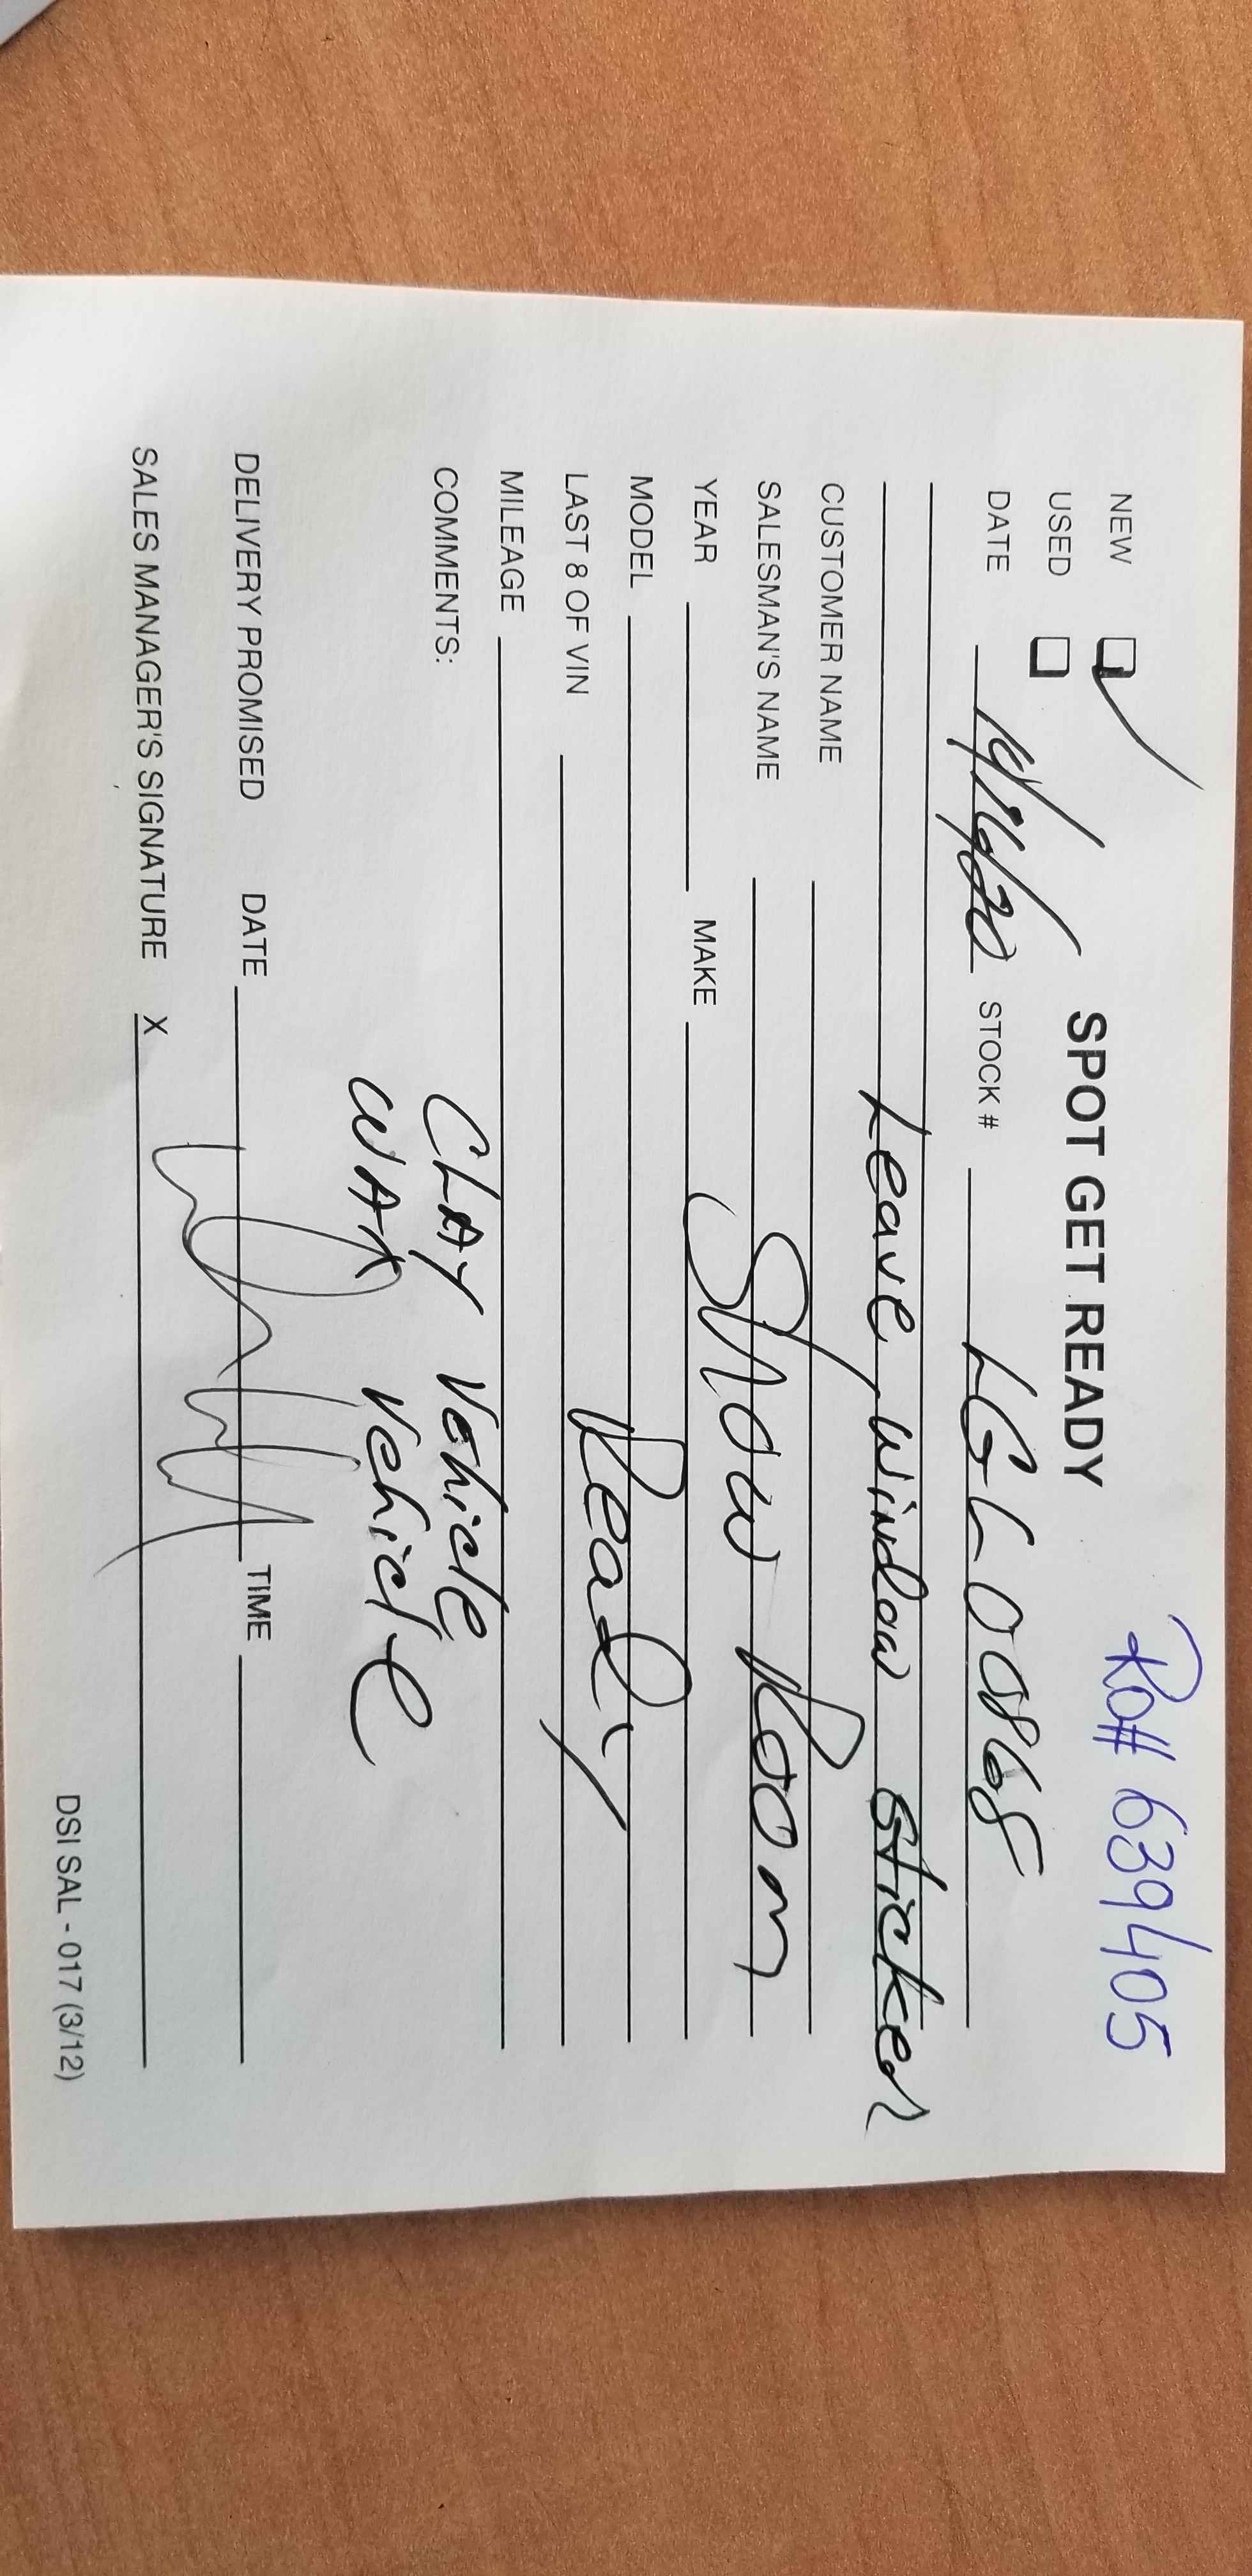 Ro# 639405
NEW
SPOT GET READY
USED
DATE STOCK # LGL0868
Leave Window Sticker
CUSTOMER NAME
SALESMAN'S NAME Show Room
YEAR MAKE
MODEL Ready
LAST 8 OF VIN
MILEAGE
COMMENTS: CLAY Vehicle
WAX Vehicle
DELIVERY PROMISED DATE TIME
SALES MANAGER'S SIGNATURE X
DSI SAL - 017 (3/12)